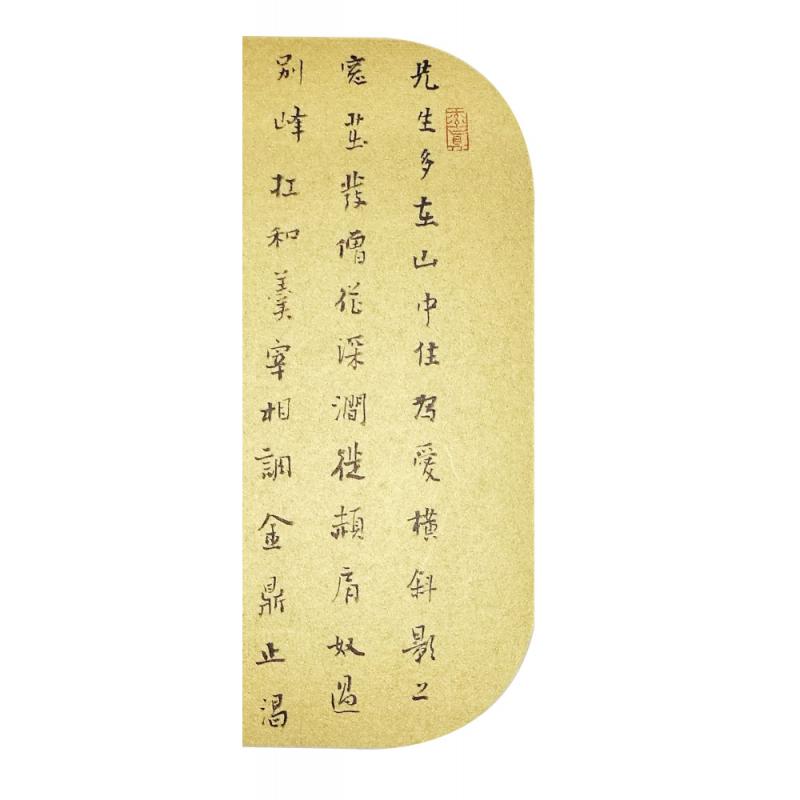 先生多在山中住為愛橫斜影上
窓髮僧從深澗徙頳肩奴過
別峰扛和羹宰相調金鼎止渴